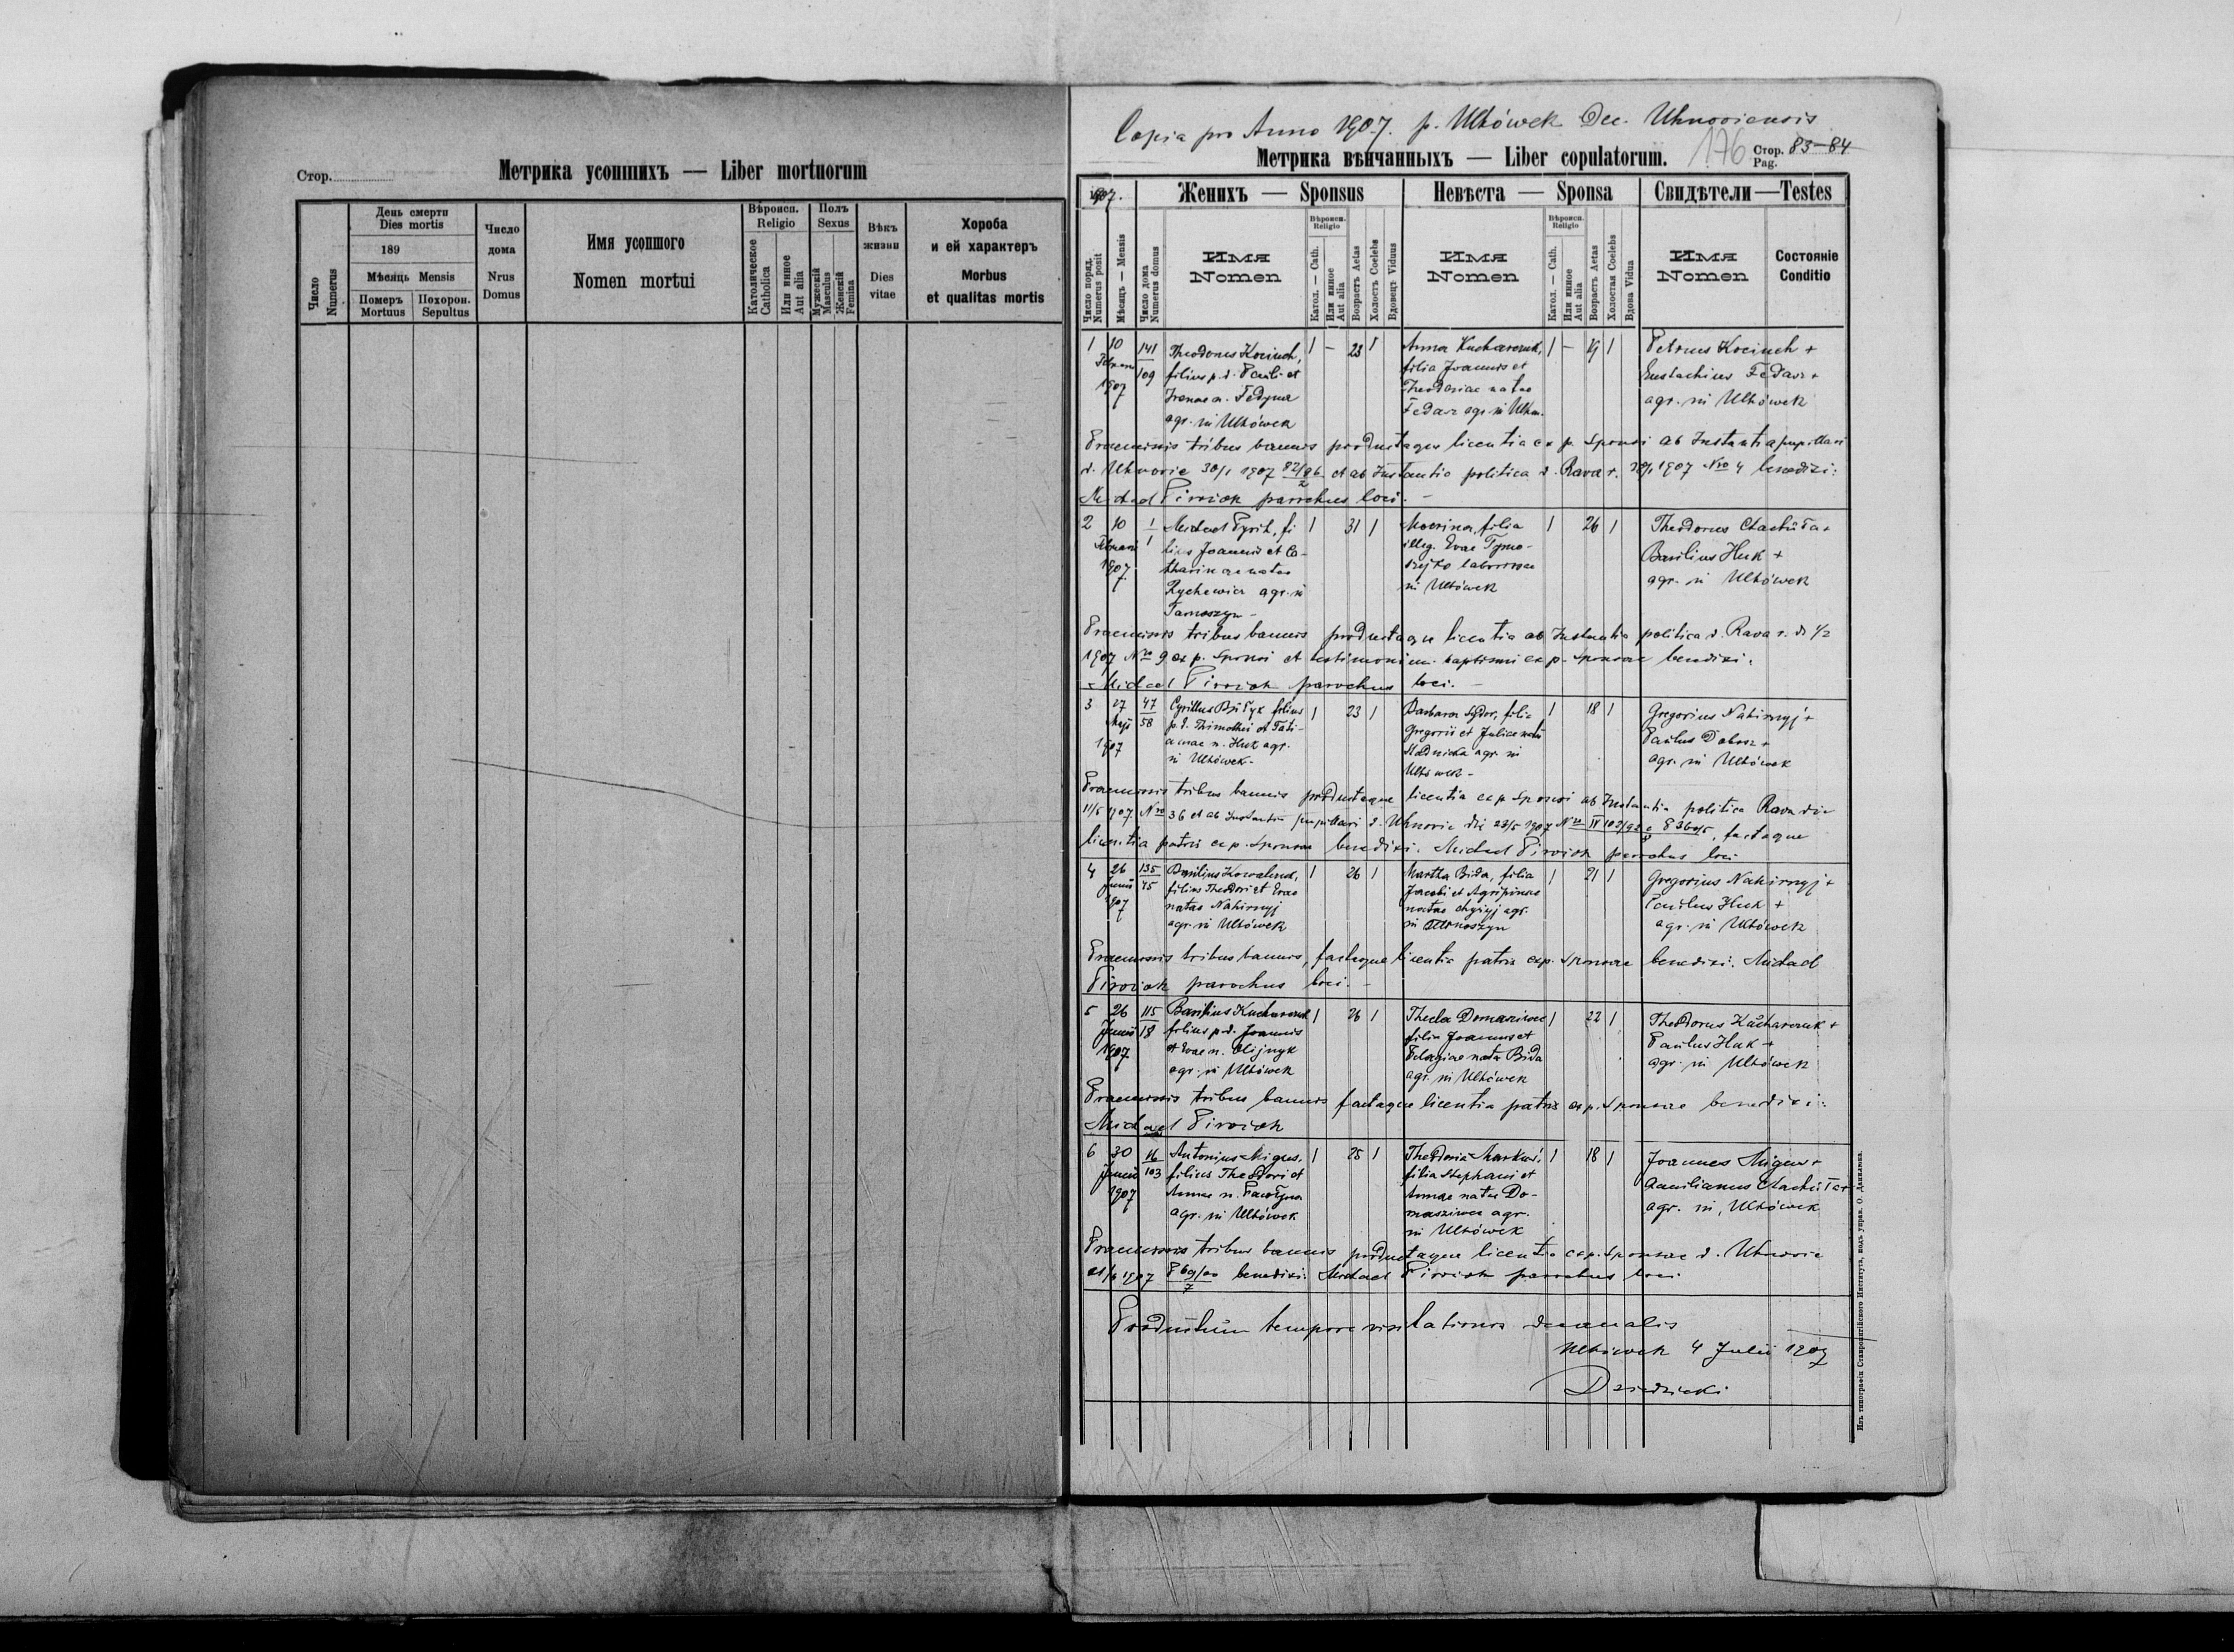 Стор.
Метрика усопшихъ — Liber mortuorum
Число
Numerus
День смерти
Dies mortis
189
Мѣсяць Mensis
Померъ
Mortuus
Похорон.
Sepultus
Число
дома
Nrus
Domus
Имя усопшого
Nomen mortui
Вѣроисп.
Religio
Католическое
Catholica
Или инное
Aut alia
Полъ
Sexus
Мужескій
Masculus
Женскій
Femina
Вѣкъ
жизни
Dies
vitae
Хороба
и ей характеръ
Morbus
et qualitas mortis
Copia pro Anno 1907. p. Uhówek Dec. Uhnoviensis
Метрика вѣнчанныхъ — Liber copulatorum.
176
Стор.
Pag.
83-84
1907.
Женихъ — Sponsus
Невѣста — Sponsa
Свидѣтели — Testes
Число поряд.
Numerus posit
Мѣсяць — Mensis
Число дома
Numerus domus
Имя
Nomen
Вѣроисп.
Religio
Катол. — Cath.
Или инное
Aut alia
Возрастъ Aetas
Холостъ Coelebs
Вдовецъ Viduus
Имя
Nomen
Вѣроисп.
Religio
Катол. — Cath.
Или инное
Aut alia
Возрастъ Aetas
Холостая Coelebs
Вдова Vidua
Имя
Nomen
Состояніе
Conditio
1 10 141 Theodorus Kociuch, 1 - 23 1 Anna Kucharczuk, 1 - 19 1 Petrus Kociuch +
109 filius p. d. Pauli et filia Joannis et Eustachius Fedasz +
1907 Irenae n. Fedyna Theodosiae natae agr. in Uhówek
agr. in Uhówek Fedasz agr. in Uhów.
Praemissis tribus bannis productaque licentia ex p. Sponsi ab Instantia pupillari
d. Uhnovie 30/1 1907 et ab Instantia politica d. Rava r. 1907 Nro 4 benedixi:
Michael Pirożok parochus loci. -
2 10 1 Michael Pyrih, fi 1 31 1 Macrina, filia 1 26 1 Theodorus +
1 lius Joannis et Ca- illeg. Evae Tymo- Basilius Huk +
1907 tharinae natae agr. in Uhówek
agr. in in Uhówek
Tarnoszyn -
Praemissis tribus bannis productaque licentia ab Instantia politica d. Rava r. d. 1/2
1907 Nro 9 ex p. Sponsi et testimonium baptismi ex p. Sponsae benedixi.
Michael Pirożok parochus loci. -
3 27 47 Cyrillus filius 1 23 1 Barbara Sydor, filia 1 18 1 Gregorius Nahirnyj +
Maji 58 p. d. Thimothei et Tati- Gregorii et Juliae natae Paulus Dobosz +
1907 anae n. Huk agr. agr. in agr. in Uhówek
in Uhówek - Uhówek -
Praemissis tribus bannis productaque licentia ex p. Sponsi ab Instantia politica Rava die
11/5 1907. Nro 36 et ab Instantia pupillari d. Uhnovie die 23/5 1907 factaque
licentia patris ex p. Sponsae benedixi. Michael Pirożok parochus loci
4 26 135 Basilius 1 26 1 Martha Bida, filia 1 21 1 Gregorius Nahirnyj +
Junii 45 filius Theodori et Evae Jacobi et Agripinae Paulus Huk +
1907 natae Nahirnyj natae agr. agr. in Uhówek
agr. in Uhówek in Tarnoszyn
Praemissis tribus bannis, factaque licentia patris ex p. Sponsae benedixi. Michael
Pirożok parochus loci. -
5 26 115 Basilius Kucharczuk 1 26 1 Thecla 1 22 1 Theodorus Kucharczuk +
Junii 18 filius p. d. Joannis filia Joannis et Paulus Huk +
1907 et Evae n. Olijnyk Pelagiae nata Bida agr. in Uhówek
agr. in Uhówek agr. in Uhówek
Praemissis tribus bannis factaque licentia patris ex p. Sponsae benedixi:
Michael Pirożok
6 30 16 Antonius Migus, 1 25 1 Theodosia 1 18 1 Joannes Migus +
Junii 103 filius Theodori et filia Stephani et
1907 Annae n. Annae natae Do- agr. in Uhówek
agr. in Uhówek agr.
in Uhówek
Praemissis tribus bannis productaque licentia ex p. Sponsae d. Uhnovie
1907 benedixi: Michael Pirożok parochus loci
Productum tempore visitationis decanalis
Uhówek 4 Julii 1907
Dziedzicki
Изъ типографіи Ставропигійского Института, подъ управ. О. Данилюка.